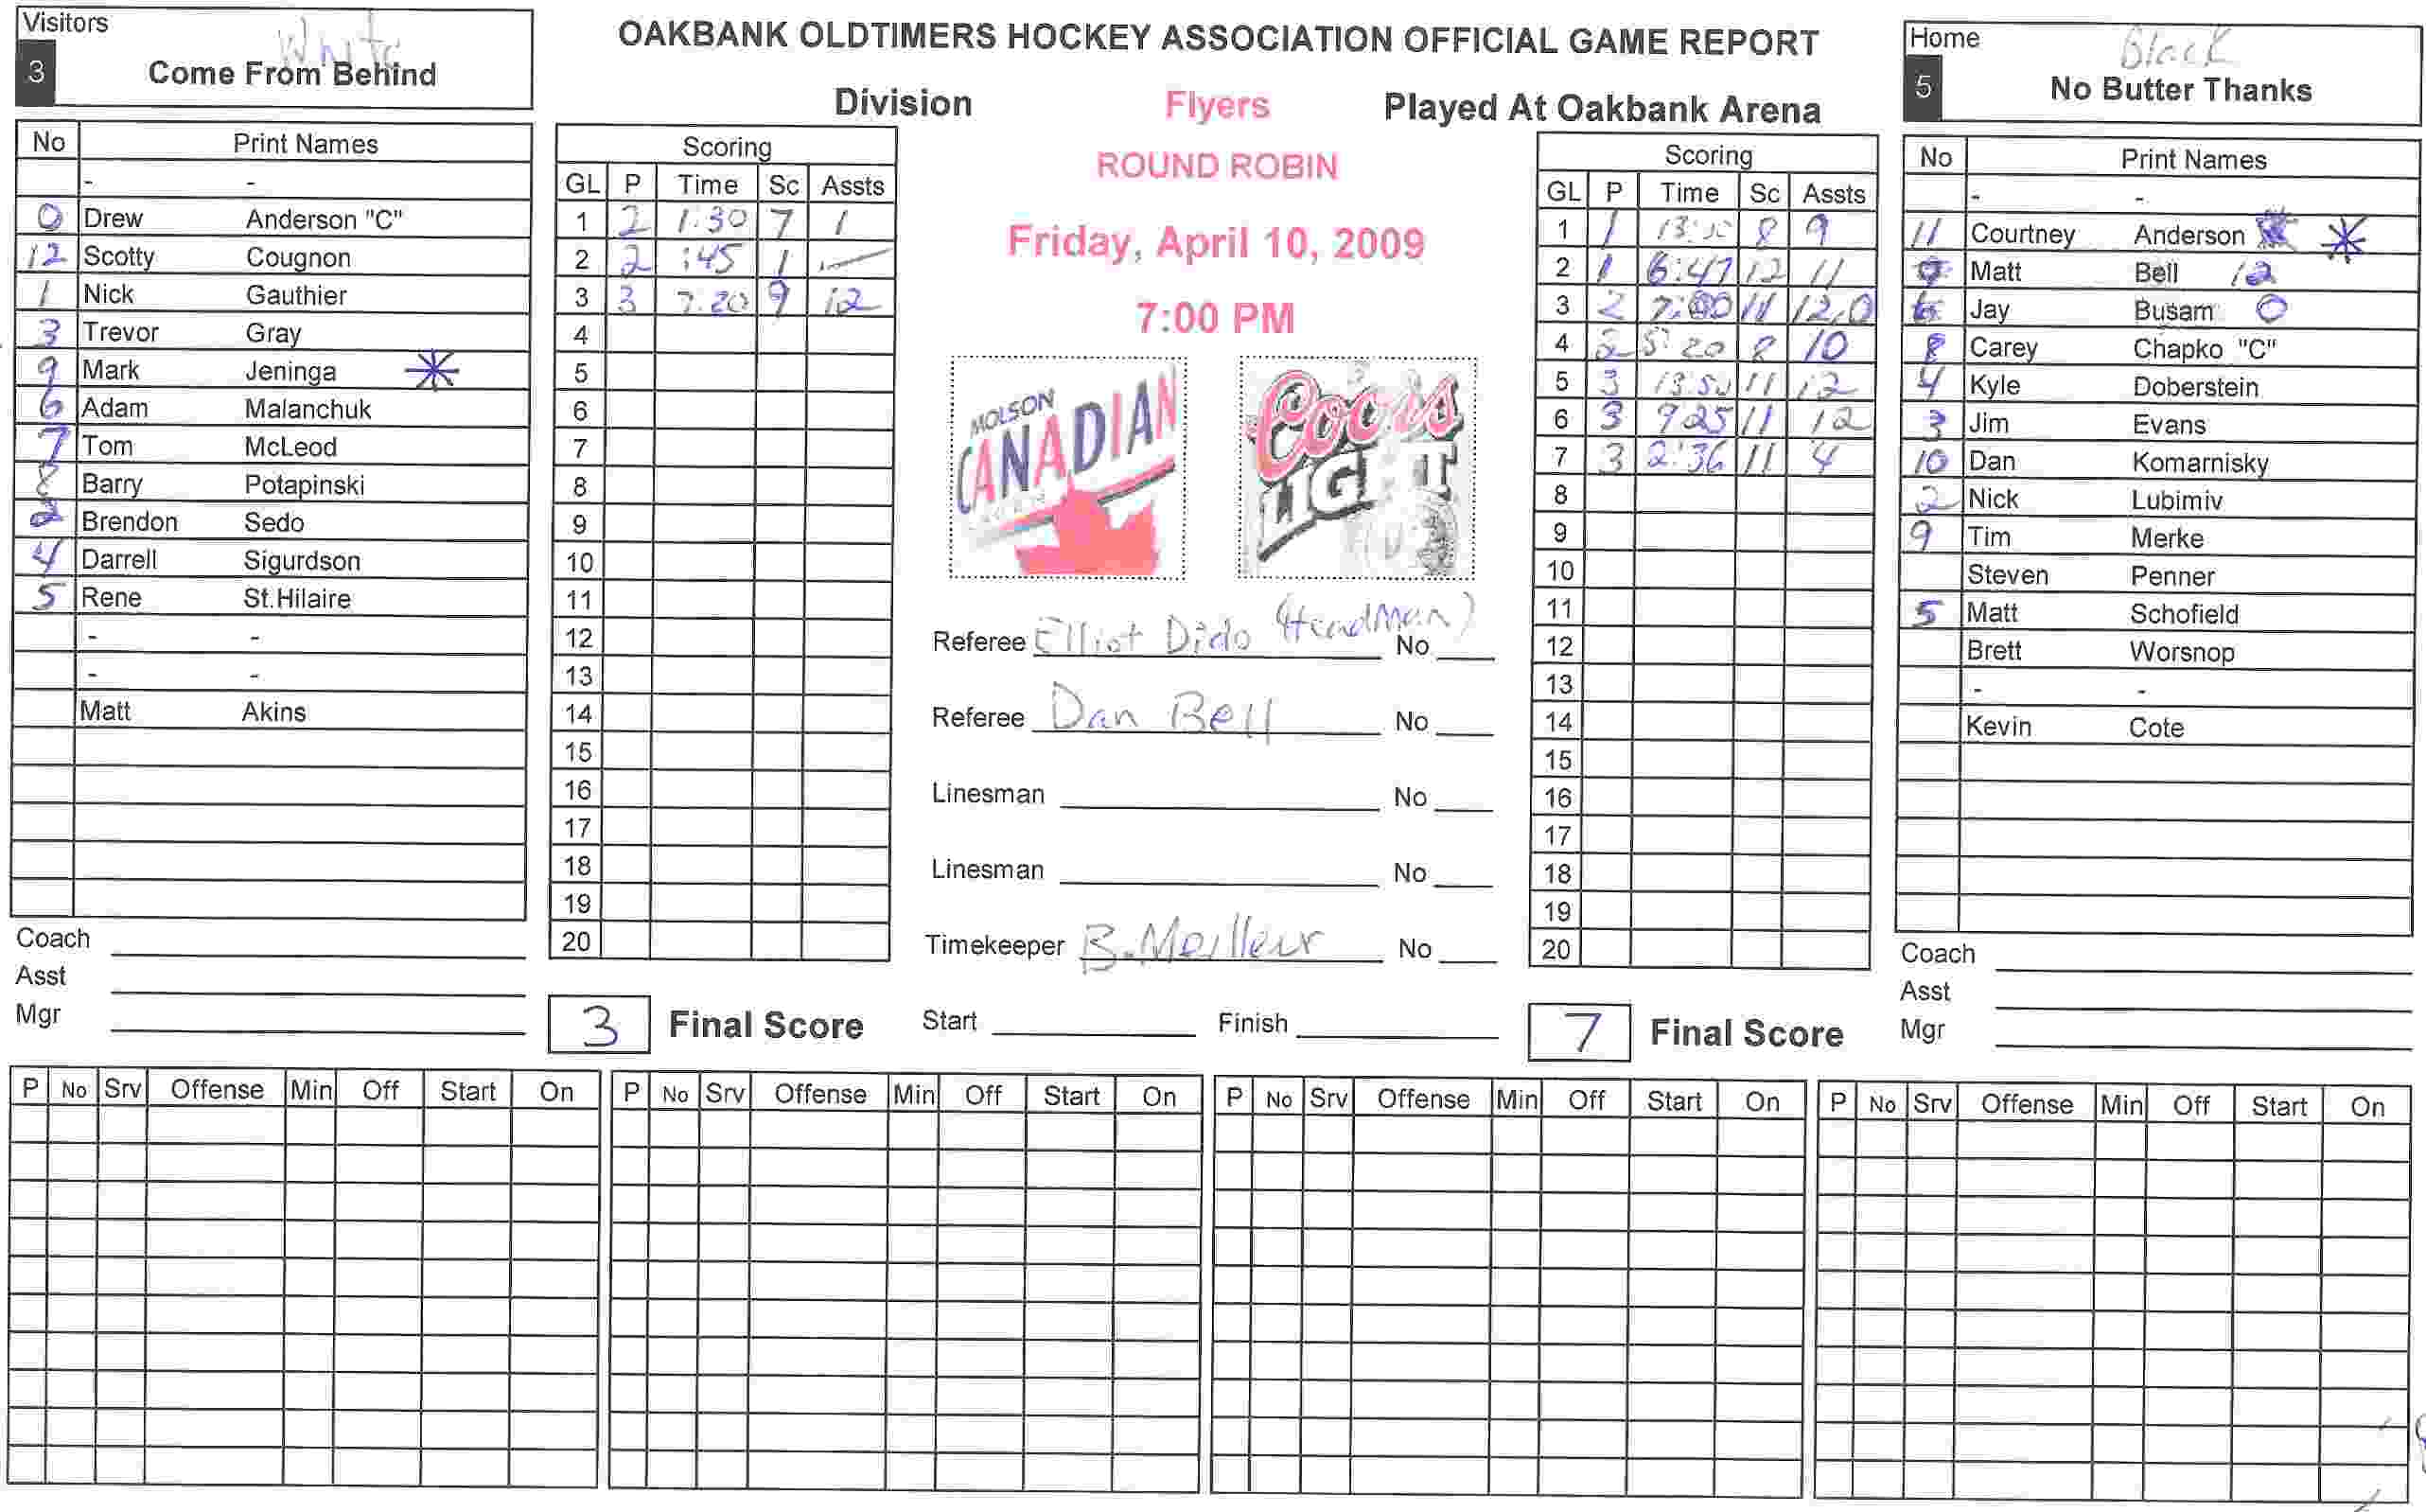 Visitors
White
3 Come From Behind
OAKBANK OLDTIMERS HOCKEY ASSOCIATION OFFICIAL GAME REPORT
Division Flyers Played At Oakbank Arena
ROUND ROBIN
Friday, April 10, 2009
7:00 PM
Home
Black
5 No Butter Thanks
No Print Names
- -
0 Drew Anderson "C"
12 Scotty Cougnon
1 Nick Gauthier
3 Trevor Gray
9 Mark Jeninga *
6 Adam Malanchuk
7 Tom McLeod
8 Barry Potapinski
2 Brendon Sedo
4 Darrell Sigurdson
5 Rene St.Hilaire
- -
- -
Matt Akins
Coach
Asst
Mgr
Scoring
GL P Time Sc Assts
1 2 1:30 7 1
2 2 :45 1 —
3 3 7:20 9 12
4
5
6
7
8
9
10
11
12
13
14
15
16
17
18
19
20
3 Final Score
MOLSON
CANADIAN
Coors
LIGHT
Referee Elliot Dido (HeadMan) No
Referee Dan Bell No
Linesman No
Linesman No
Timekeeper B. Meilleur No
Start Finish
Scoring
GL P Time Sc Assts
1 1 8 9
2 1 6:47 12 11
3 2 7:00 11 12,0
4 2 5:20 8 10
5 3 13:50 11 12
6 3 9:25 11 12
7 3 2:36 11 4
8
9
10
11
12
13
14
15
16
17
18
19
20
7 Final Score
No Print Names
- -
11 Courtney Anderson *
Matt Bell 12
Jay Busam 0
8 Carey Chapko "C"
4 Kyle Doberstein
3 Jim Evans
10 Dan Komarnisky
2 Nick Lubimiv
9 Tim Merke
Steven Penner
5 Matt Schofield
Brett Worsnop
- -
Kevin Cote
Coach
Asst
Mgr
P No Srv Offense Min Off Start On
P No Srv Offense Min Off Start On
P No Srv Offense Min Off Start On
P No Srv Offense Min Off Start On